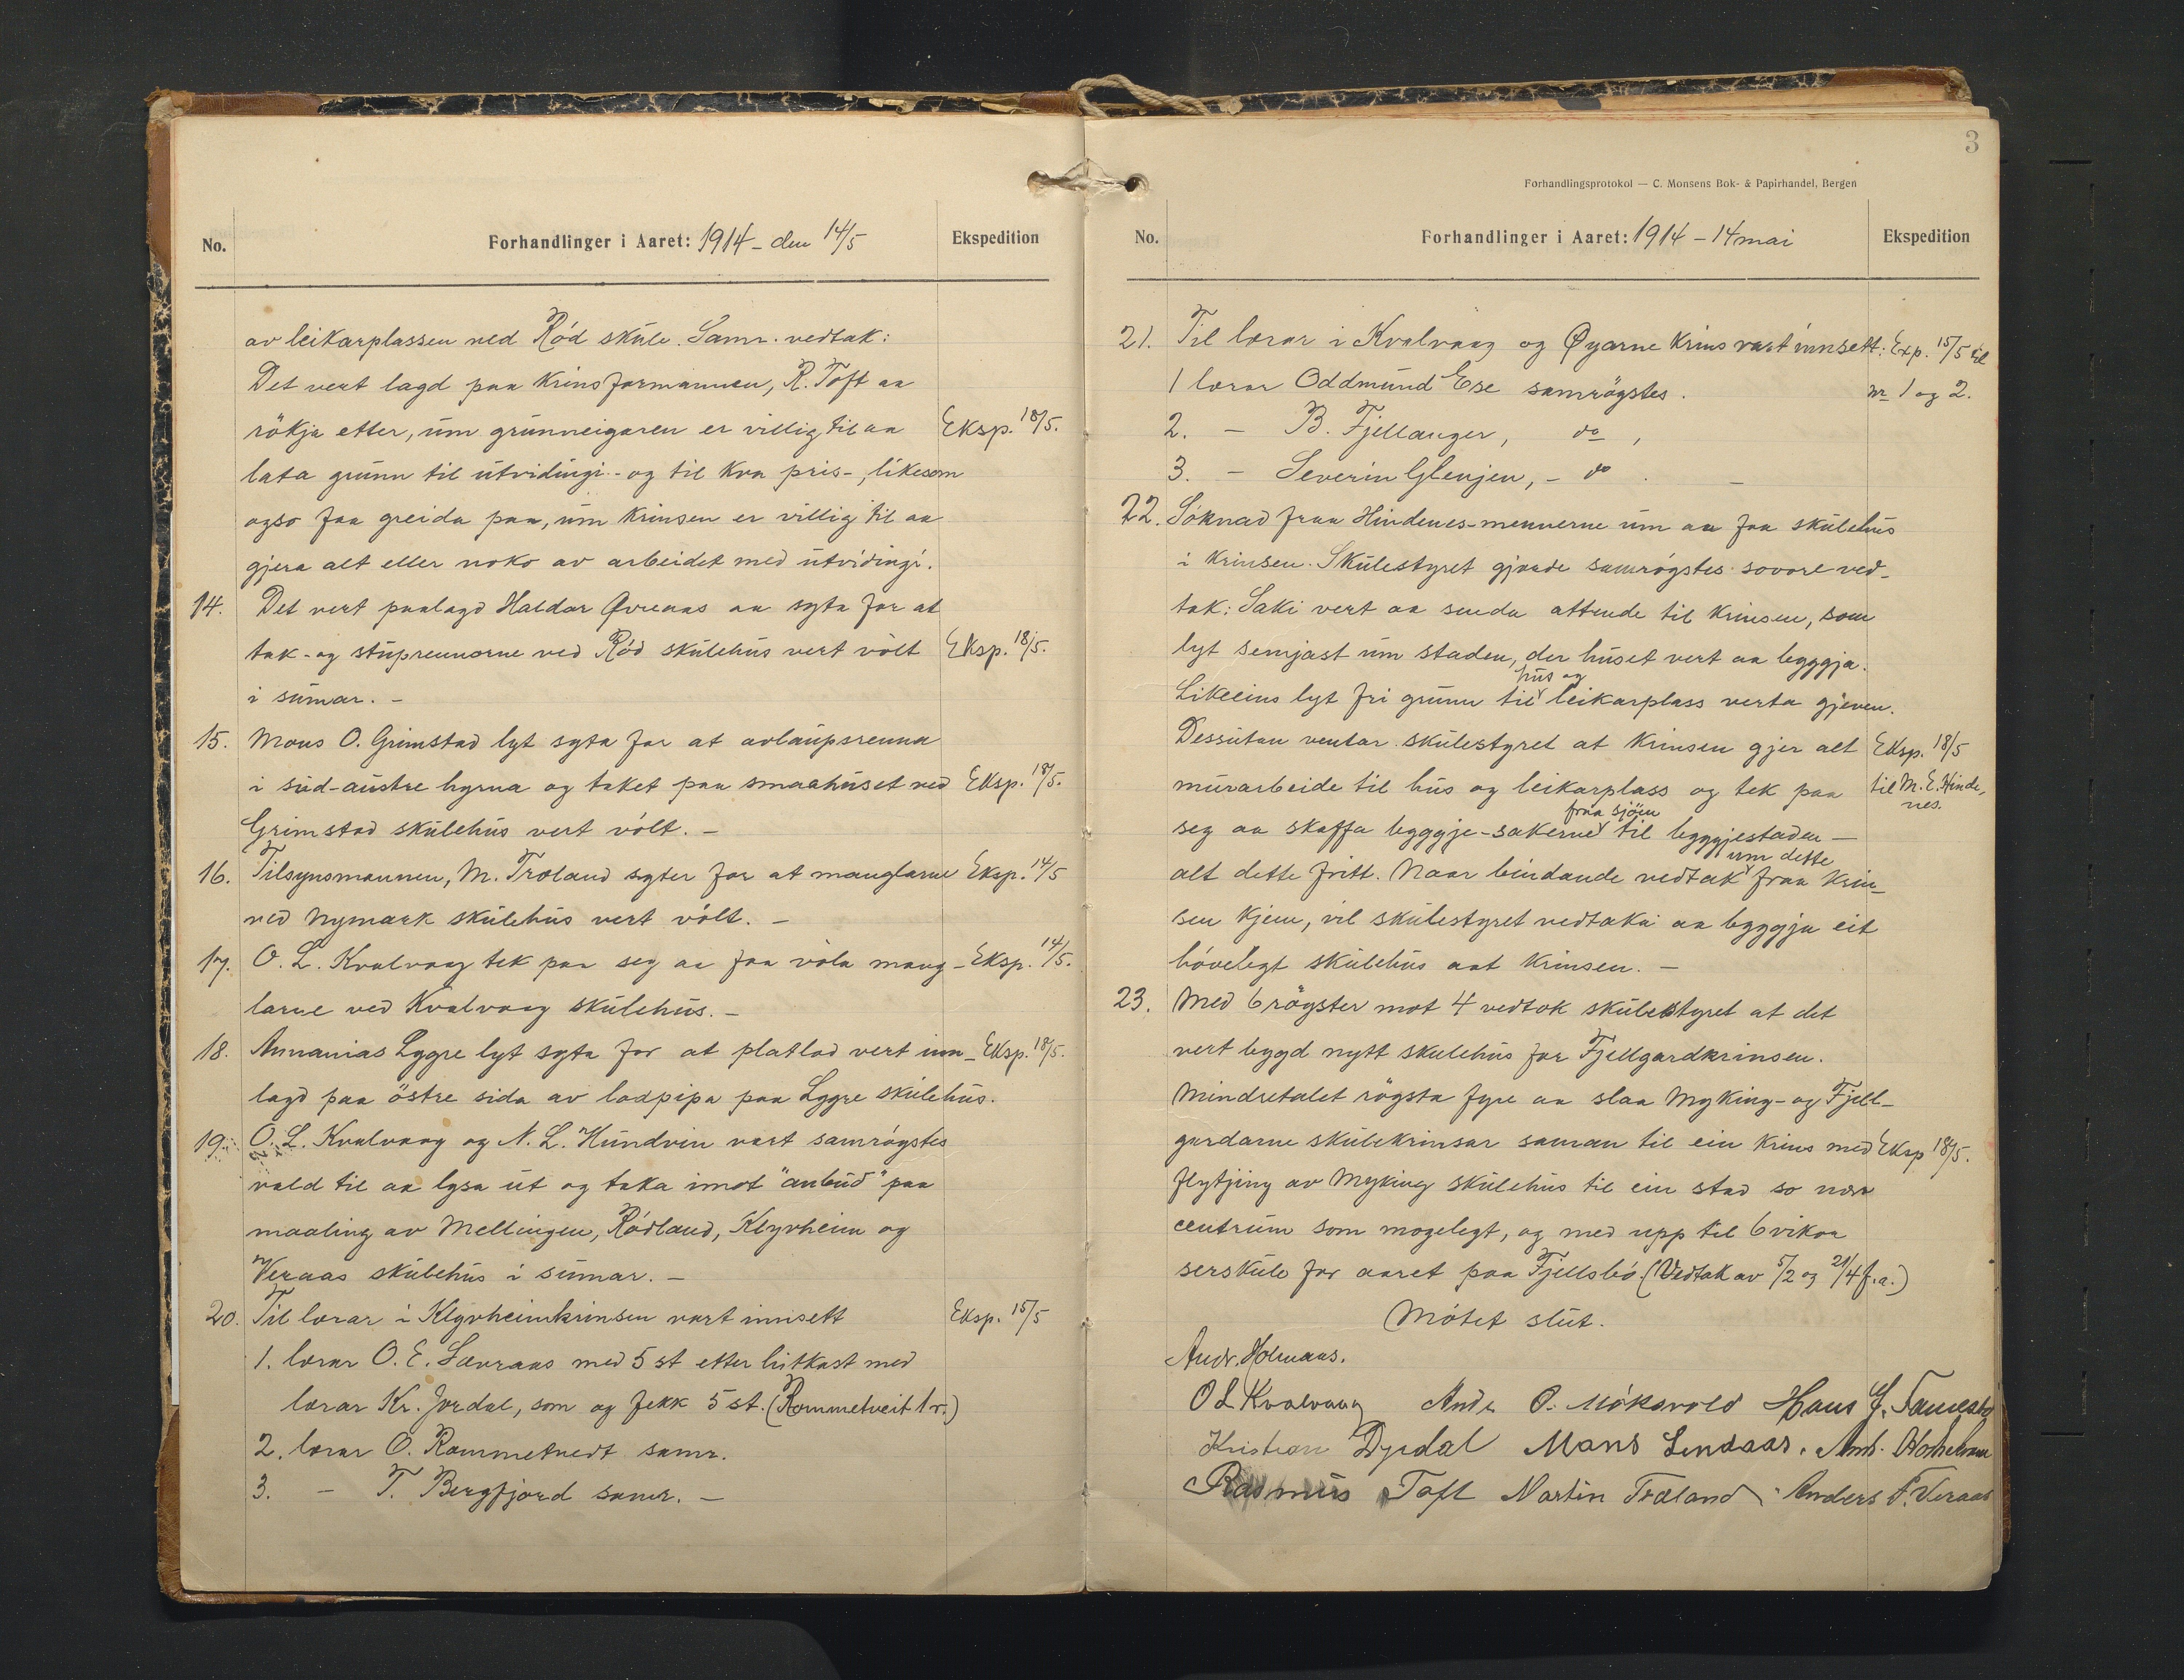 No.
Forhandlinger i Aaret: 1914 - den 14/5
Ekspedition
av leikarplassen ved Röd skule. Samr. vedtak:
Det vert lagd paa krinsformannen, R. Toft aa
rökja etter, um grunneigaren er villig til aa Eksp. 18/5.
lata grunn til utvidingi - og til kva pris -, likesom
ogso faa greida paa, um krinsen er villig til aa
gjera alt eller noko av arbeidet med utvidingi.
14. Det vert paalagd Haldor Øvreaas aa syta for at
tak- og stuprennorne ved Röd skulehus vert völt Eksp. 18/5.
i sumar. -
15. Mons O. Grimstad lyt syta for at avlaupsrenna
i sud-austre hyrna og taket paa smaahuset ved Eksp. 18/5.
Grimstad skulehus vert völt. -
16. Tilsynsmannen, M. Træland syter for at manglarne Eksp. 14/5
ved Nymark skulehus vert völt. -
17. O. L. Kvalvaag tek paa seg aa faa völa mang- Eksp. 14/5.
larne ved Kvalvaag skulehus. -
18. Annanias Lygre lyt syta for at platlod vert inn- Eksp. 18/5.
lagd paa östre sida av lodpipa paa Lygre skulehus.
19. O. L. Kvalvaag og N. L. Hundvin vart samrögstes
vald til aa lysa ut og taka imot "anbud" paa
maaling av Mellingen, Rödland, Klyvheim og
Veraas skulehus i sumar. -
20. Til lærar i Klyvheimkrinsen vart innsett Eksp. 15/5
1. lærar O. E. Sævraas med 5 st etter lutkast med
lærar Kr. Jordal, som og fekk 5 st. (Rommetveit 1 r.)
2. lærar O. Rommetvedt samr.
3. - T. Bergfjord samr. -
3
Forhandlingsprotokol — C. Monsens Bok- & Papirhandel, Bergen
No.
Forhandlinger i Aaret: 1914 - 14 mai
Ekspedition
21. Til lærar i Kvalvaag og Øyarne krins vart innsett: Exp. 15/5 til
1 lærar Oddmund Ese samrögstes. nr 1 og 2.
2. - B. Fjellanger, do,
3. - Severin Glenjen, - do. -
22. Söknad fraa Hindenes-mennerne um aa faa skulehus
i krinsen. Skulestyret gjorde samrögstes sovore ved-
tak: Saki vert aa senda attende til krinsen, som
lyt semjast um staden, der huset vert aa byggja.
hus og
Likeeins lyt fri grunn til leikarplass verta gjeven.
Dessutan ventar skulestyret at krinsen gjer alt Eksp. 18/5
murarbeide til hus og leikarplass og tek paa til M. E. Hinde-
nes.
fraa sjöen
seg aa skaffa byggje-sakerne til byggjestaden -
um dette
alt dette fritt. Naar bindande vedtak fraa krin-
sen kjem, vil skulestyret vedtaka aa byggja eit
hövelegt skulehus aat krinsen. -
23. Med 6 rögster mot 4 vedtok skulestyret at det
vert bygd nytt skulehus for Fjellgardkrinsen.
Mindretalet rögsta fyre aa slaa Myking- og Fjell-
gardarne skulekrinsar saman til ein krins med Eksp 18/5.
flytjing av Myking skulehus til ein stad so nær
centrum som mogelegt, og med upp til 6 vikor
serskule for aaret paa Fjellsbö. (Vedtak av 5/2 og 21/4 f.a.)
Mötet slut.
Andr. Holmaas.
O L Kvalvaag Anders O. Möksvold Hans J.
Kristian Dyrdal Mons Lindaas.
Rasmus Toft Martin Træland Anders A. Veraas